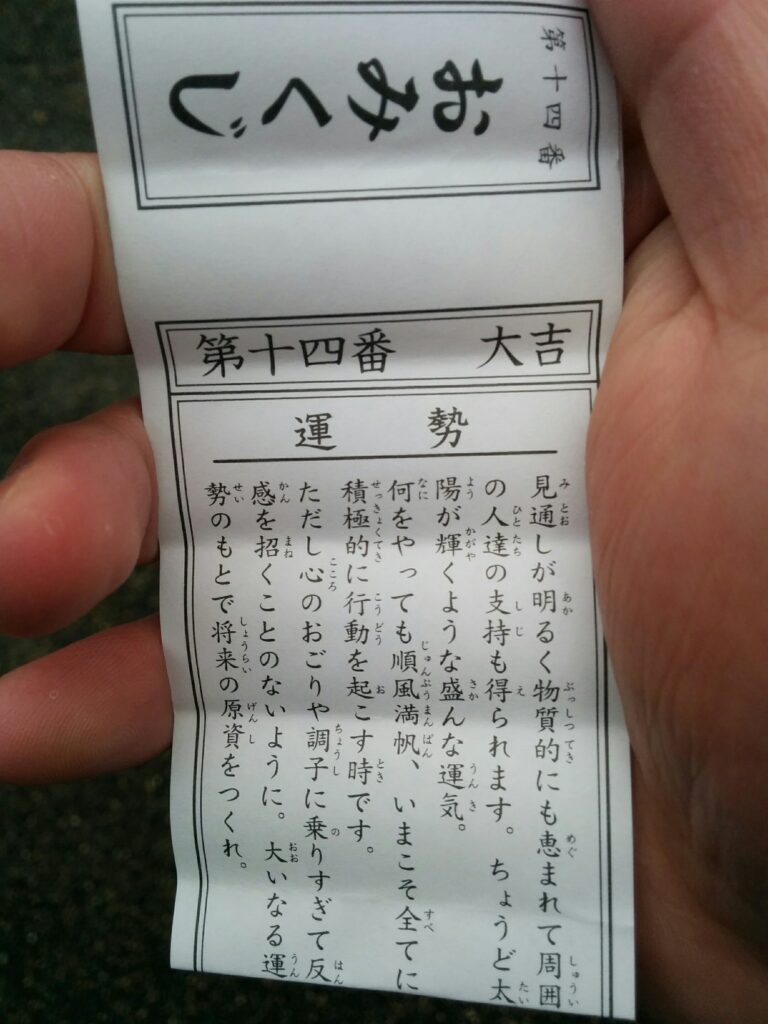 第十四番
おみくじ
第十四番 大吉
運勢
見通しが明るく物質的にも恵まれて周囲
の人達の支持も得られます。ちょうど太
陽が輝くような盛んな運気。
何をやっても順風満帆、いまこそ全てに
積極的に行動を起こす時です。
ただし心のおごりや調子に乗りすぎて反
感を招くことのないように。大いなる運
勢のもとで将来の原資をつくれ。